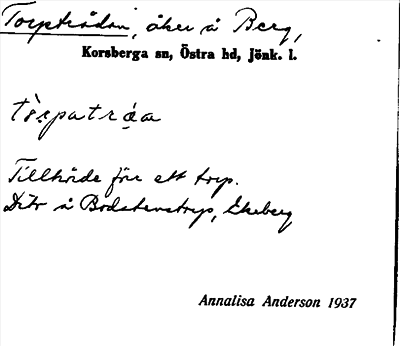 Torpträdan, åker å Berg,
Korsberga sn, Östra hd, Jönk. l.
Tillhörde förr ett torp.
Dito å Bodstenstorp, Ekeberg
Annalisa Anderson 1937